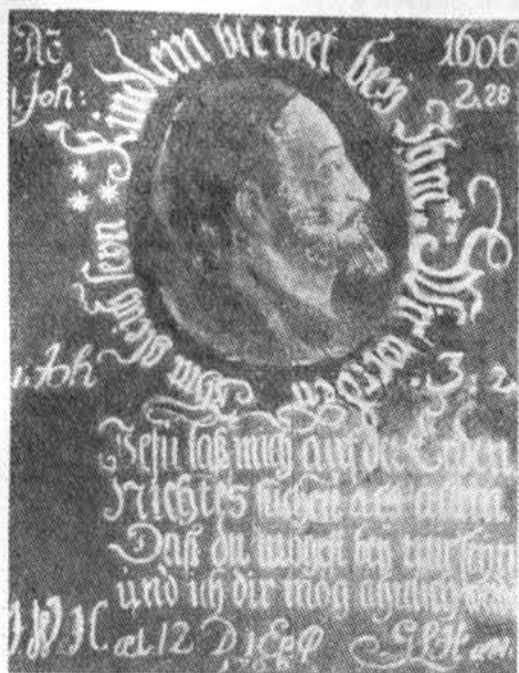 Aõ 1606
1. Joh: 2.28
Kindlein bleibet bey Ihm: Wir werden Ihm gleich seyn
1. Joh 3:2
Jesu laß mich auf der Erden
Nichtes suchen als allein
Daß du mögest bey mir seyn
und ich dir mög ähnlich
æt. 12